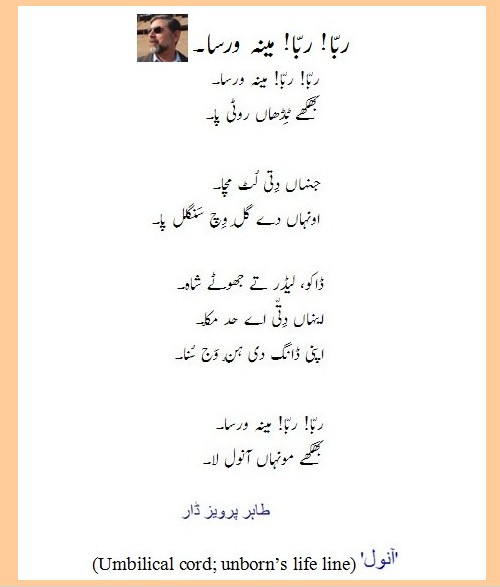 ربّا! ربّا! مینہ ورسا۔
ربّا! ربّا! مینہ ورسا۔
بھُکھے ٹِڈھاں روٹی پا۔
جنہاں دِتی لُٹ مچا۔
اونہاں دے گل وِچ سَنگل پا۔
ڈاکو، لیڈر تے جھوٹے شاہ۔
اینہاں دِتّی اے حد مکا۔
اپنی ڈانگ دی ہنِ وَج سُنا۔
ربّا! ربّا! مینہ ورسا۔
بھُکھے مونہاں آنول لا۔
طاہر پرویز ڈار
'آنول' (Umbilical cord; unborn's life line)